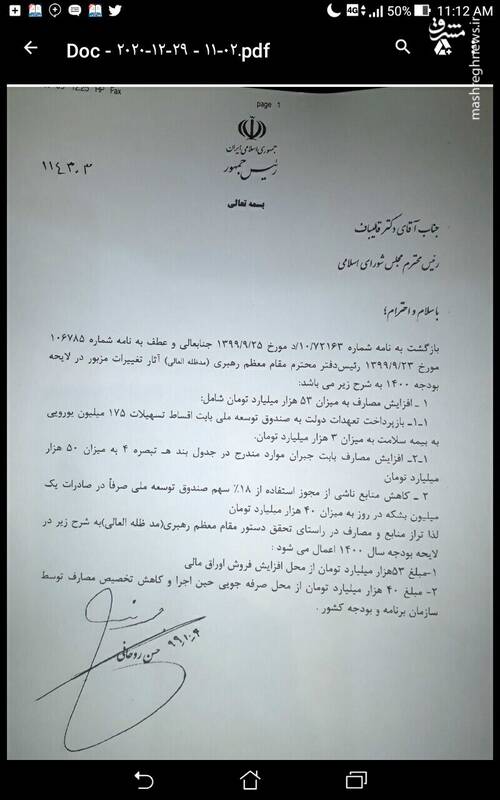 4G
50%
11:12 AM
Doc - ۲۰۲۰-۱۲-۲۹ - ۱۱-۰۲.pdf
مشرق
mashreghnews.ir
HP Fax
page 1
جمهوری اسلامی ایران
رئیس جمهور
۱۱۴۳۰۳
بسمه تعالی
جناب آقای دکتر قالیباف
رئیس محترم مجلس شورای اسلامی
با سلام و احترام؛
بازگشت به نامه شماره ۱۰/۷۲۱۶۳/د مورخ ۱۳۹۹/۹/۲۵ جنابعالی و عطف به نامه شماره ۱۰۶۷۸۵
مورخ ۱۳۹۹/۹/۲۳ رئیس‌دفتر محترم مقام معظم رهبری (مدظله العالی) آثار تغییرات مزبور در لایحه
بودجه ۱۴۰۰ به شرح زیر می باشد:
۱ - افزایش مصارف به میزان ۵۳ هزار میلیارد تومان شامل:
۱-۱- بازپرداخت تعهدات دولت به صندوق توسعه ملی بابت اقساط تسهیلات ۱۷۵ میلیون یورویی
به بیمه سلامت به میزان ۳ هزار میلیارد تومان.
۱-۲- افزایش مصارف بابت جبران موارد مندرج در جدول بند هـ تبصره ۴ به میزان ۵۰ هزار
میلیارد تومان
۲ - کاهش منابع ناشی از مجوز استفاده از ۱۸٪ سهم صندوق توسعه ملی صرفاً در صادرات یک
میلیون بشکه در روز به میزان ۴۰ هزار میلیارد تومان
لذا تراز منابع و مصارف در راستای تحقق دستور مقام معظم رهبری(مد ظله العالی)به شرح زیر در
لایحه بودجه سال ۱۴۰۰ اعمال می شود :
۱-مبلغ ۵۳هزار میلیارد تومان از محل افزایش فروش اوراق مالی
۲- مبلغ ۴۰ هزار میلیارد تومان از محل صرفه جویی حین اجرا و کاهش تخصیص مصارف توسط
سازمان برنامه و بودجه کشور .
حسن روحانی
۹۹,۱۰,۹